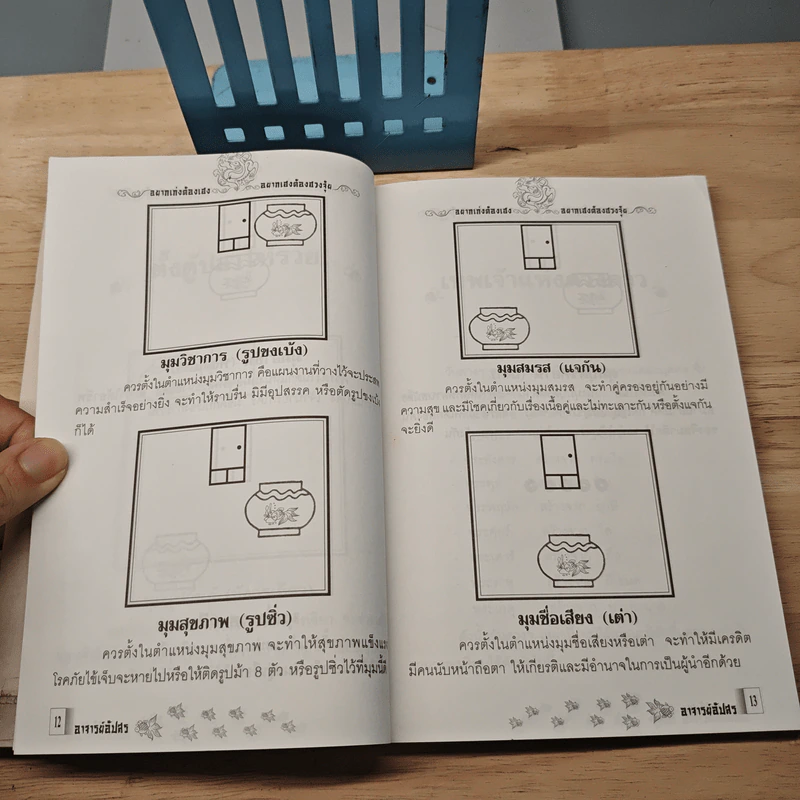 อยากเก่งต้องเฮง อยากเฮงต้องฮวงจุ้ย
มุมวิชาการ (รูปขงเบ้ง)
ควรตั้งในตำแหน่งมุมวิชาการ คือแผนงานที่วางไว้จะประสพ
ความสำเร็จอย่างยิ่ง จะทำให้ราบรื่น มิมีอุปสรรค หรือตัดรูปขงเบ้ง
ก็ได้
มุมสุขภาพ (รูปซิ่ว)
ควรตั้งในตำแหน่งมุมสุขภาพ จะทำให้สุขภาพแข็งแรง
โรคภัยไข้เจ็บจะหายไปหรือให้ติดรูปม้า 8 ตัว หรือรูปซิ่วไว้ที่มุมนี้ก็ได้
12 อาจารย์อัปสร
อยากเก่งต้องเฮง อยากเฮงต้องฮวงจุ้ย
มุมสมรส (แจกัน)
ควรตั้งในตำแหน่งมุมสมรส จะทำให้คู่ครองอยู่กันอย่างมี
ความสุข และมีโชคเกี่ยวกับเรื่องเนื้อคู่และไม่ทะเลาะกัน หรือตั้งแจกัน
จะยิ่งดี
มุมชื่อเสียง (เต่า)
ควรตั้งในตำแหน่งมุมชื่อเสียงหรือเต่า จะทำให้มีเครดิต
มีคนนับหน้าถือตา ให้เกียรติและมีอำนาจในการเป็นผู้นำอีกด้วย
อาจารย์อัปสร 13